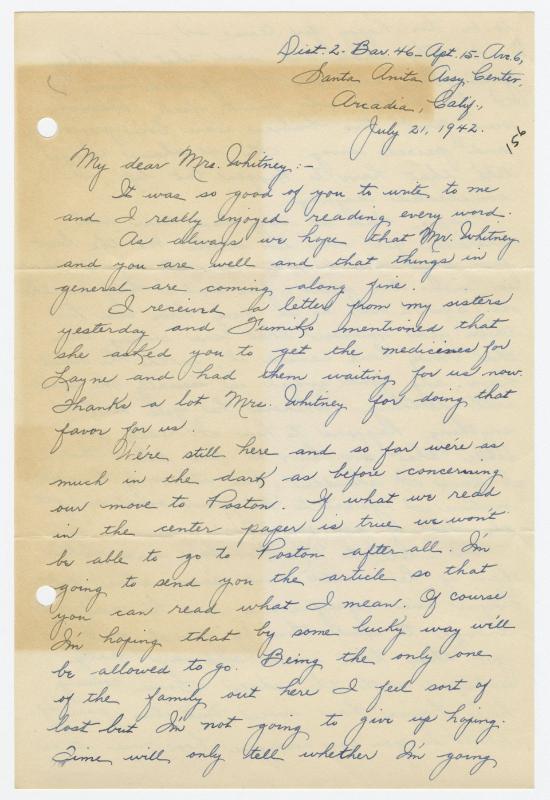 Dist. 2 - Bar. 46 - Apt. 15 - Ave. 6,
Santa Anita Assy. Center,
Arcadia, Calif.,
July 21, 1942.
My dear Mrs. Whitney:-
It was so good of you to write to me
and I really enjoyed reading every word.
As always we hope that Mr. Whitney
and you are well and that things in
general are coming along fine.
I received a letter from my sisters
yesterday and Fumiko mentioned that
she asked you to get the medicines for
Layne and had them waiting for us now.
Thanks a lot Mrs. Whitney for doing that
favor for us.
We're still here and so far we're as
much in the dark as before concerning
our move to Poston. If what we read
in the center paper is true we won't
be able to go to Poston after all. I'm
going to send you the article so that
you can read what I mean. Of course
I'm hoping that by some lucky way we'll
be allowed to go. Being the only one
of the family out here I feel sort of
lost but I'm not going to give up hoping.
Time will only tell whether I'm going